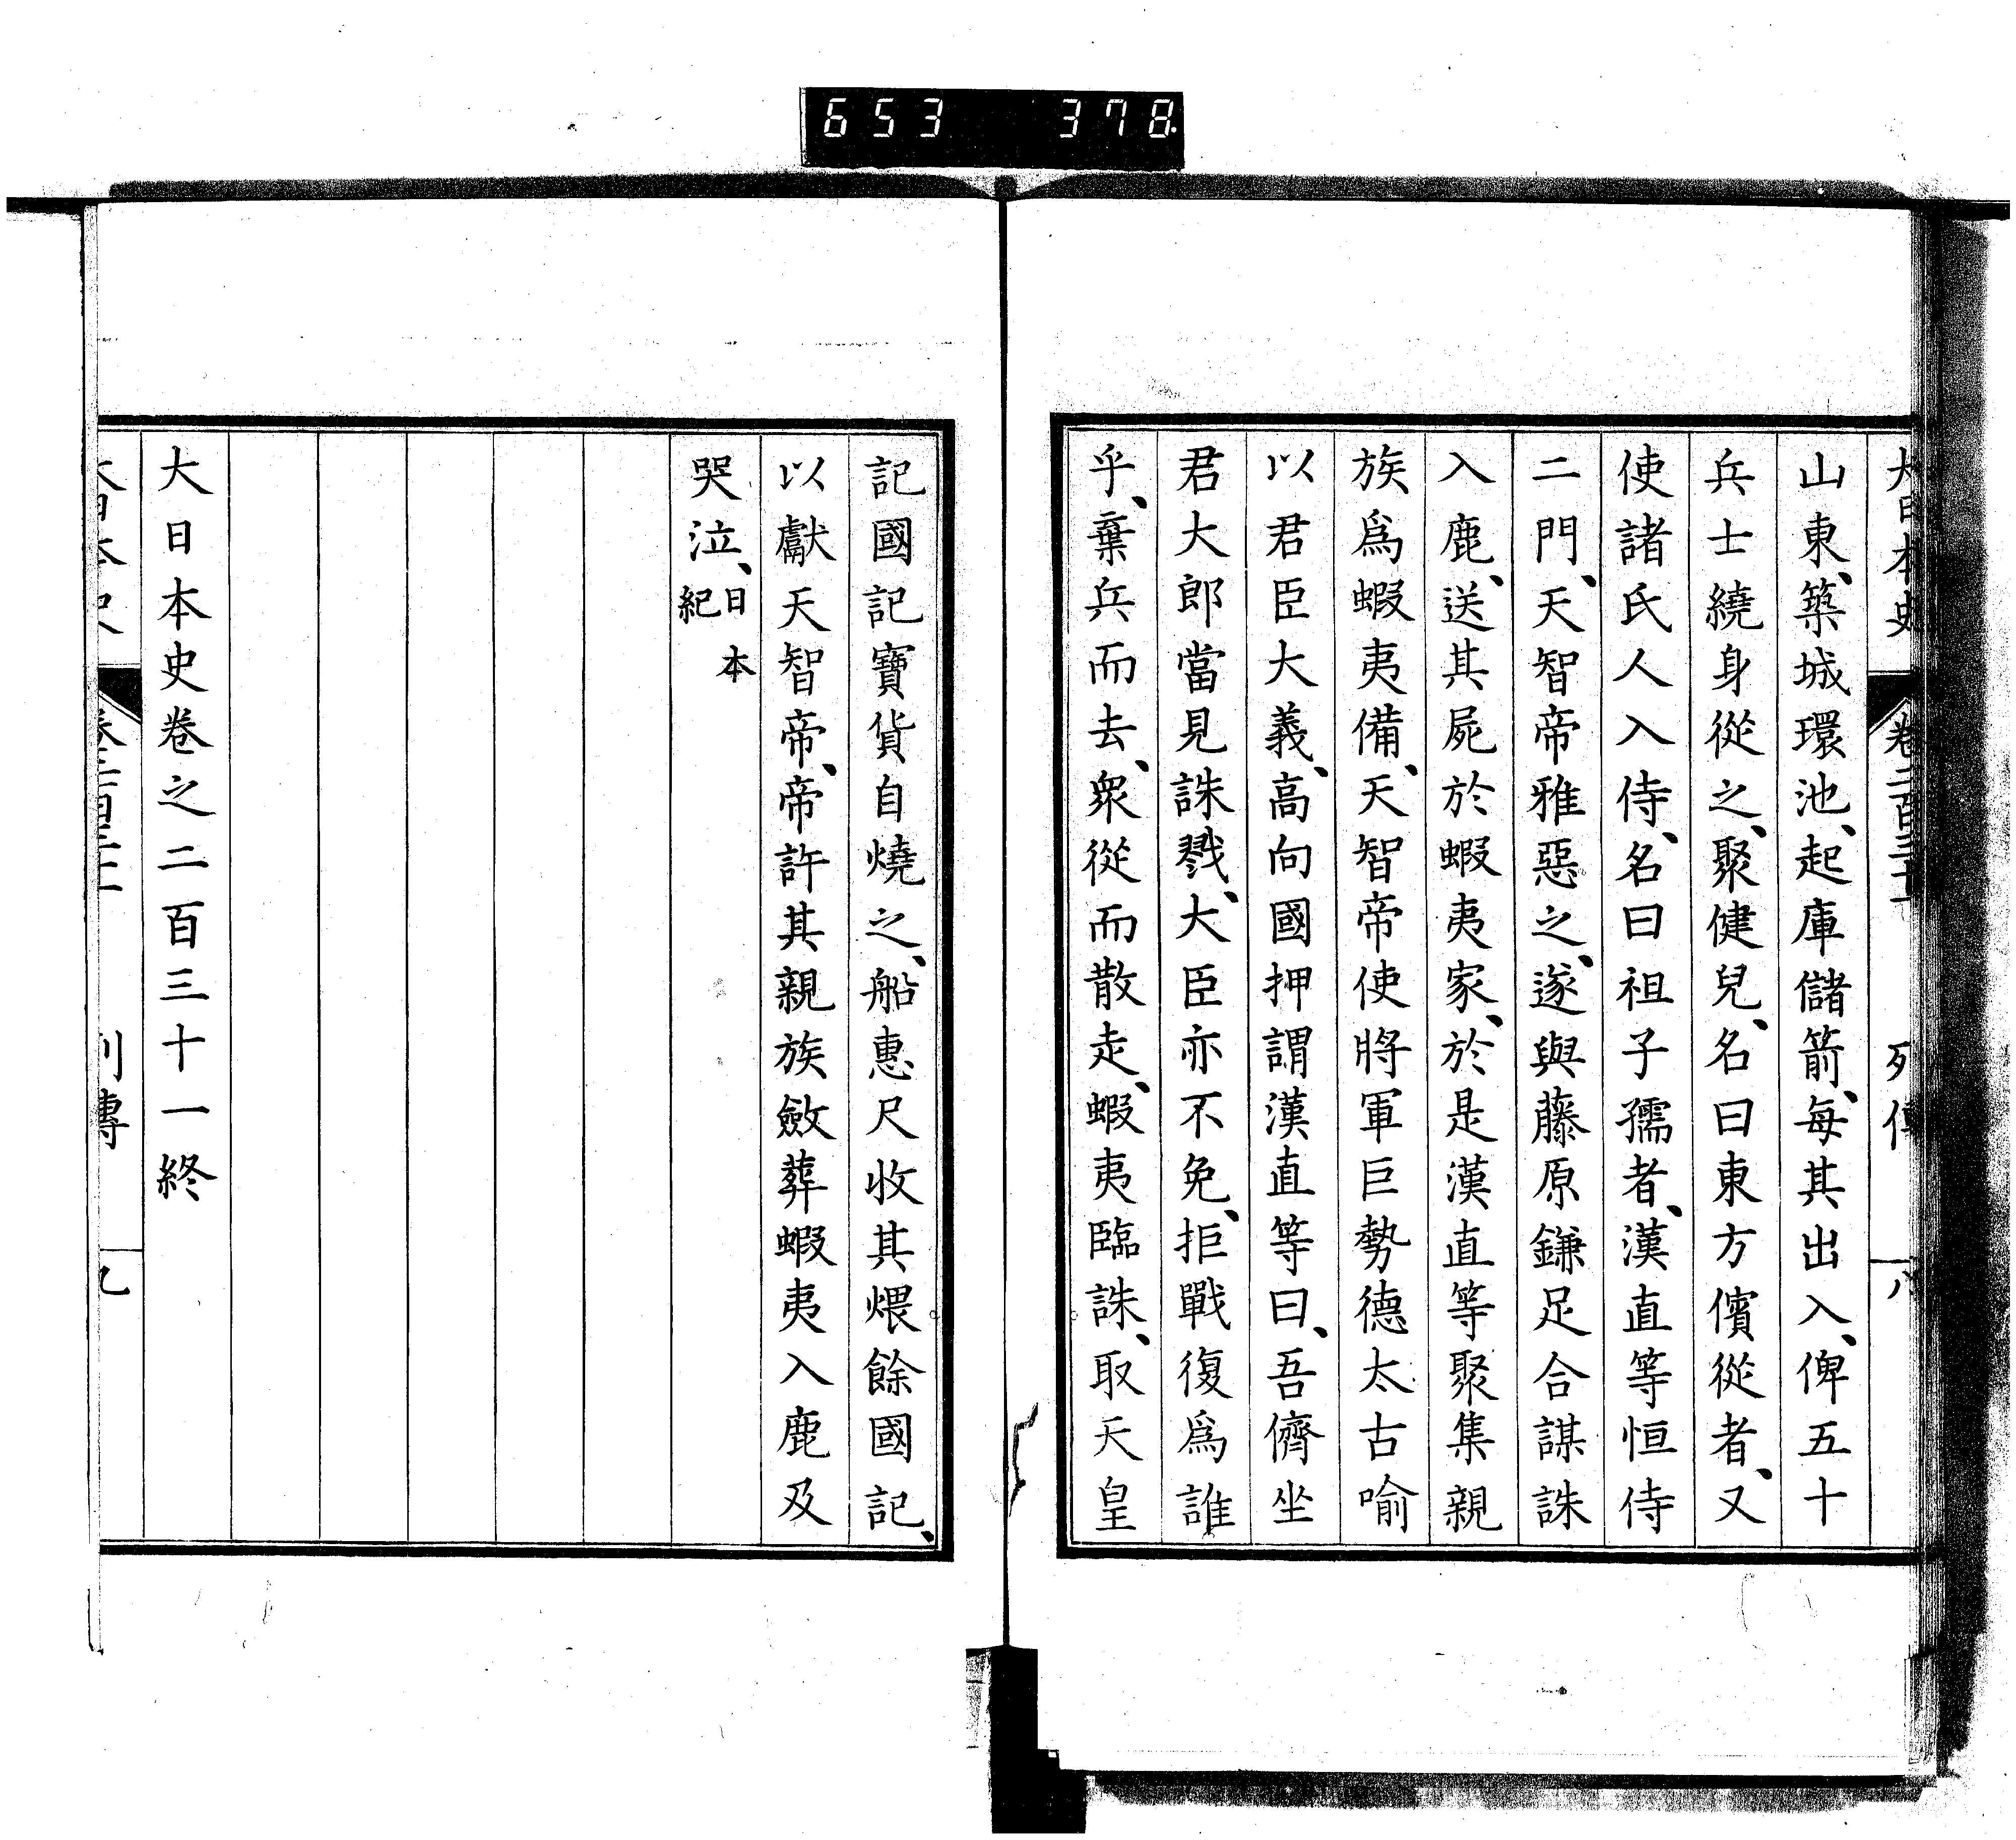 653 378
大日本史 卷二百三十一 列傳 八
山東、築城環池、起庫儲箭、每其出入、俾五十
兵士繞身從之、聚健兒、名曰東方儐從者、又
使諸氏人入侍、名曰祖子孺者、漢直等恒侍
二門、天智帝雅惡之、遂與藤原鎌足合謀誅
入鹿、送其屍於蝦夷家、於是漢直等聚集親
族爲蝦夷備、天智帝使將軍巨勢德太古喻
以君臣大義、高向國押謂漢直等曰、吾儕坐
君大郎當見誅戮、大臣亦不免、拒戰復爲誰
乎、棄兵而去、衆從而散走、蝦夷臨誅、取天皇
記國記寶貨自燒之、船惠尺收其煨餘國記、
以獻天智帝、帝許其親族斂葬蝦夷入鹿及
哭泣、日本紀
大日本史卷之二百三十一終